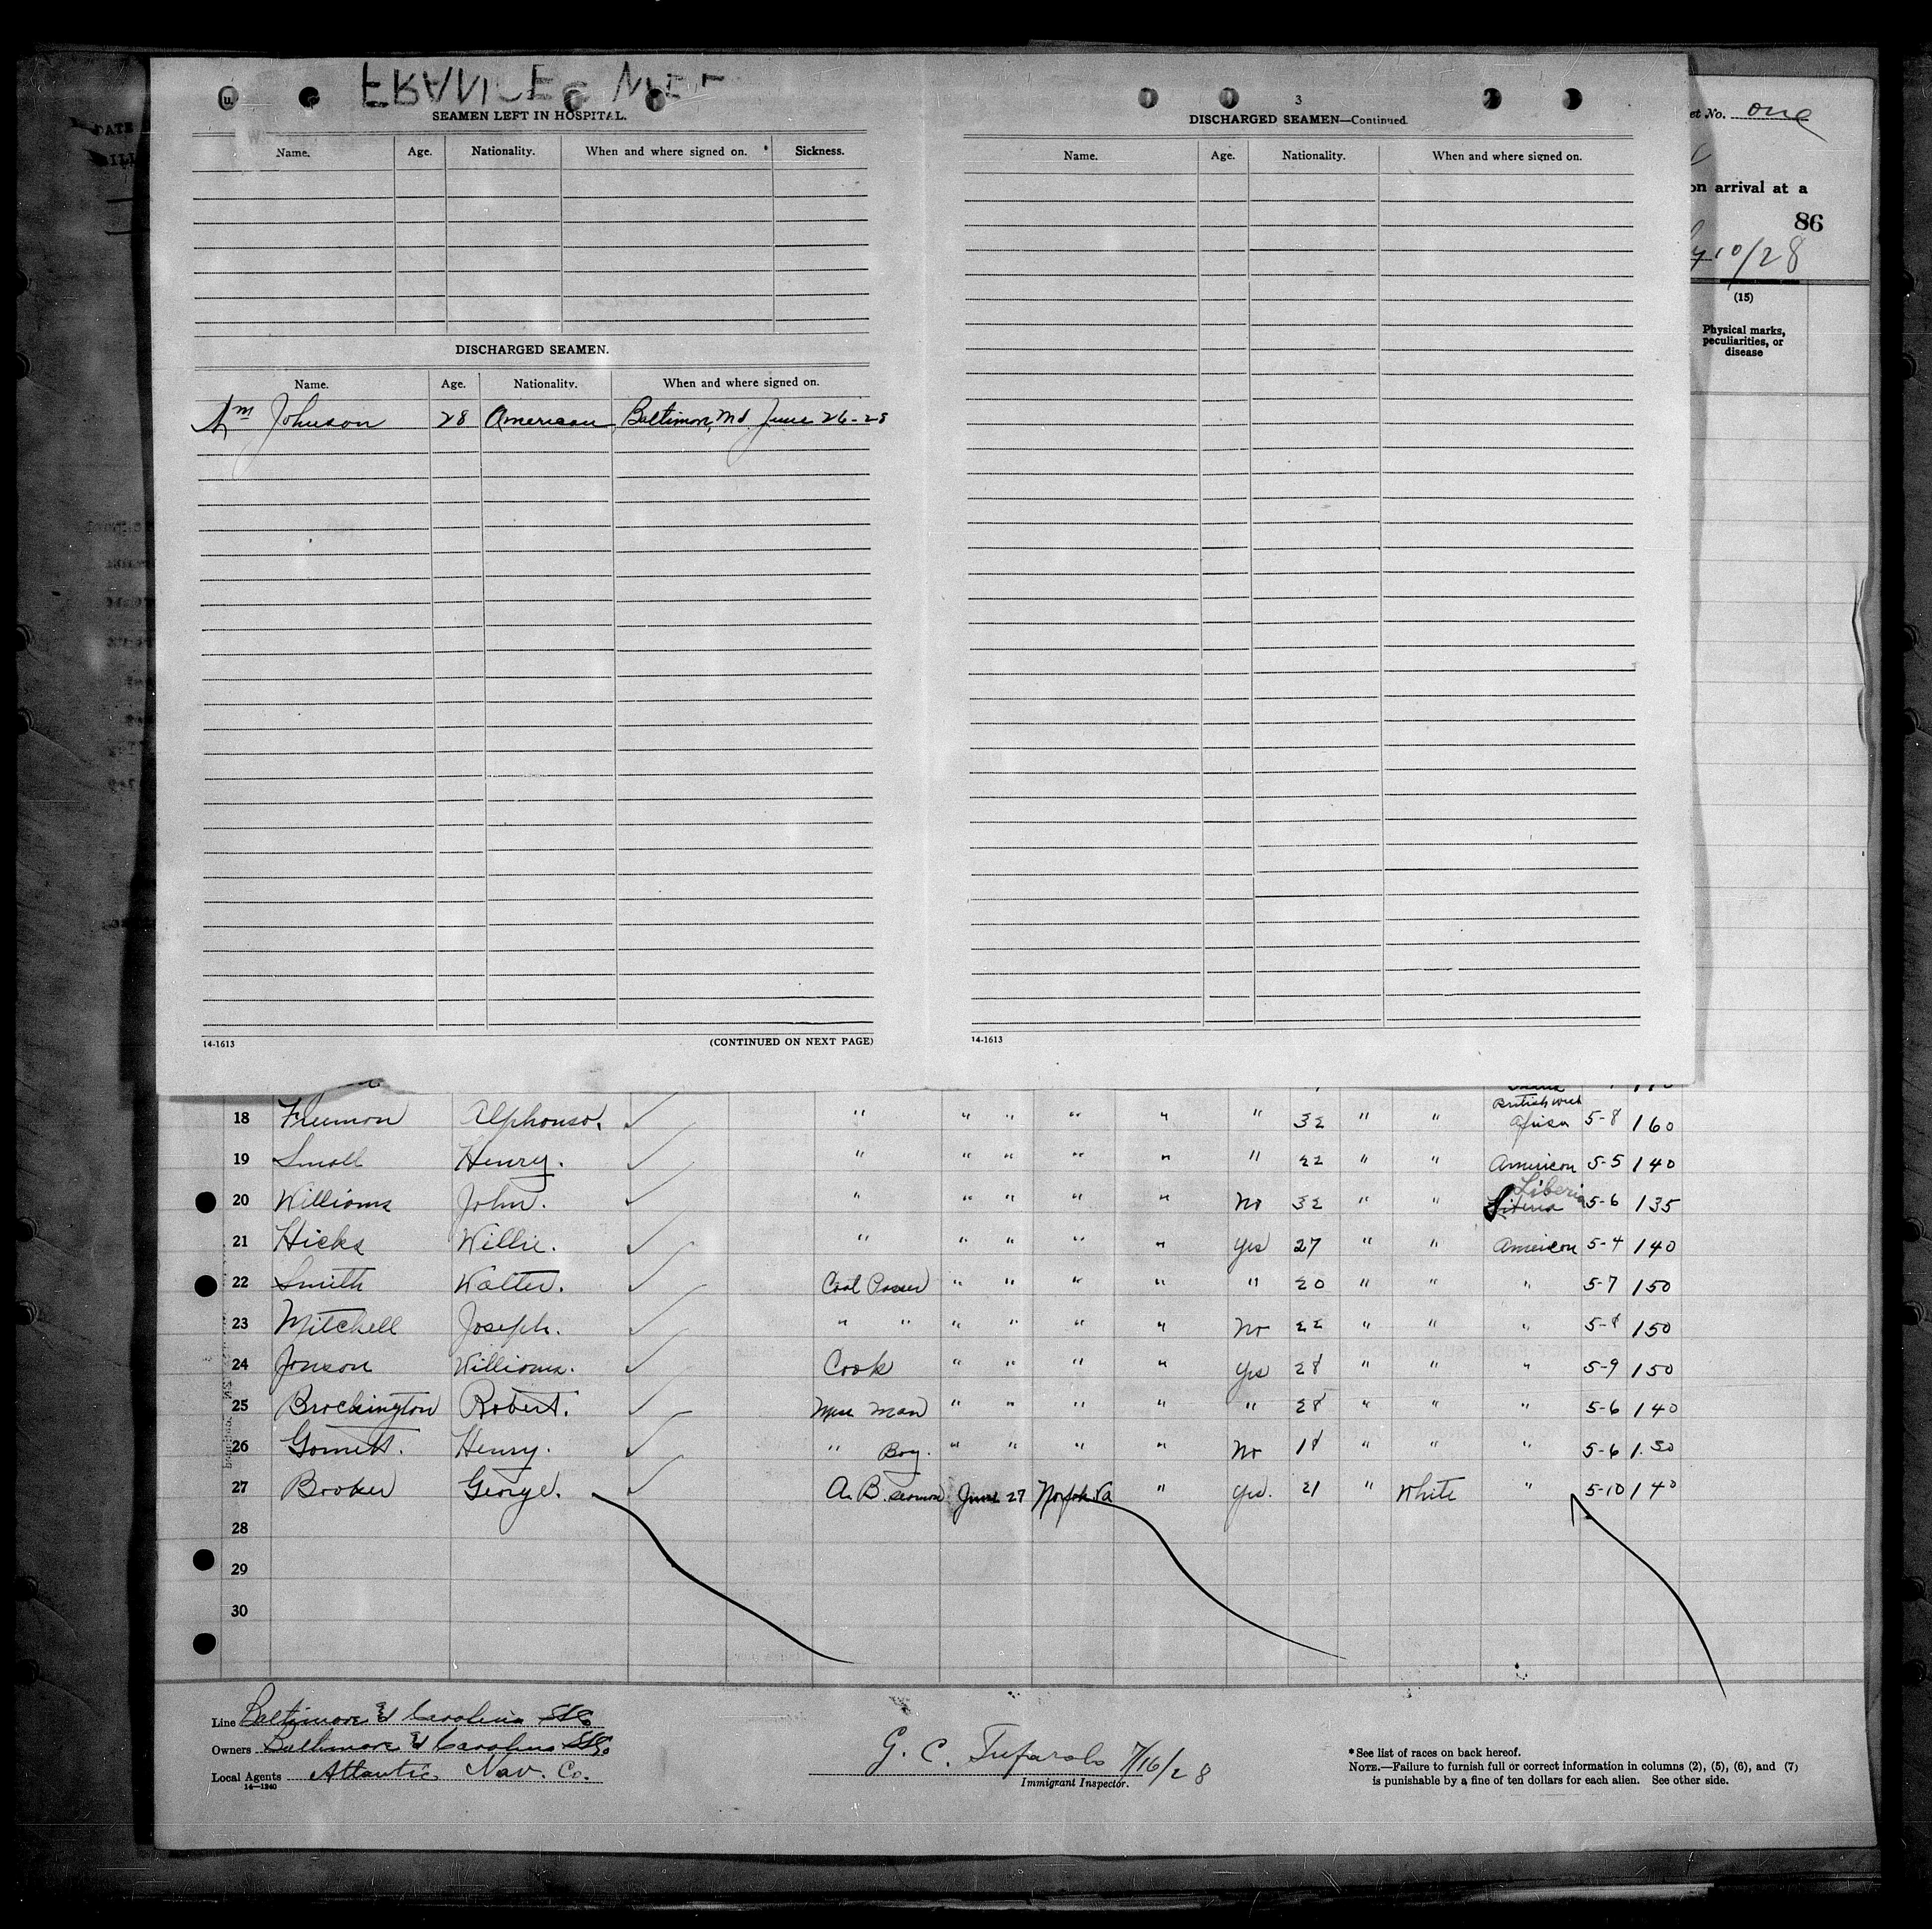 SEAMEN LEFT IN HOSPITAL.
Name. Age. Nationality. When and where signed on. Sickness.
DISCHARGED SEAMEN.
Name. Age. Nationality. When and where signed on.
Wm Johnson 28 American Baltimore, Md June 26-28
14-1613 (CONTINUED ON NEXT PAGE)
3
DISCHARGED SEAMEN—Continued.
Name. Age. Nationality. When and where signed on.
14-1613
et No. one
on arrival at a
86
10/28
(15)
Physical marks, peculiarities, or disease
18 Alphonso. " " " " " " 32 " " British West Africa 5-8 160
19 Small Henry. " " " " " " 22 " " American 5-5 140
20 Williams John. " " " " " No 32 " " Liberia 5-6 135
21 Hicks Willie. " " " " " Yes 27 " " American 5-4 140
22 Smith Walter. Coal Passer " " " " " 20 " " " 5-7 150
23 Mitchell Joseph. " " " " " " No 22 " " " 5-8 150
24 Jonson Williams. Cook " " " " Yes 28 " " " 5-9 150
25 Brockington Robert. Mess Man " " " " " 28 " " " 5-6 140
26 Henry. " Boy. " " " " No 18 " " " 5-6 130
27 Booker George. A. B. Seaman June 27 Norfolk Va " Yes. 21 " White " 5-10 140
28
29
30
Line Baltimore & Carolina SSCo
Owners Baltimore & Carolina SSCo
Local Agents Atlantic Nav. Co.
14-1240
G. C. Tufarolo 7/16/28
Immigrant Inspector.
* See list of races on back hereof.
NOTE.—Failure to furnish full or correct information in columns (2), (5), (6), and (7)
is punishable by a fine of ten dollars for each alien. See other side.